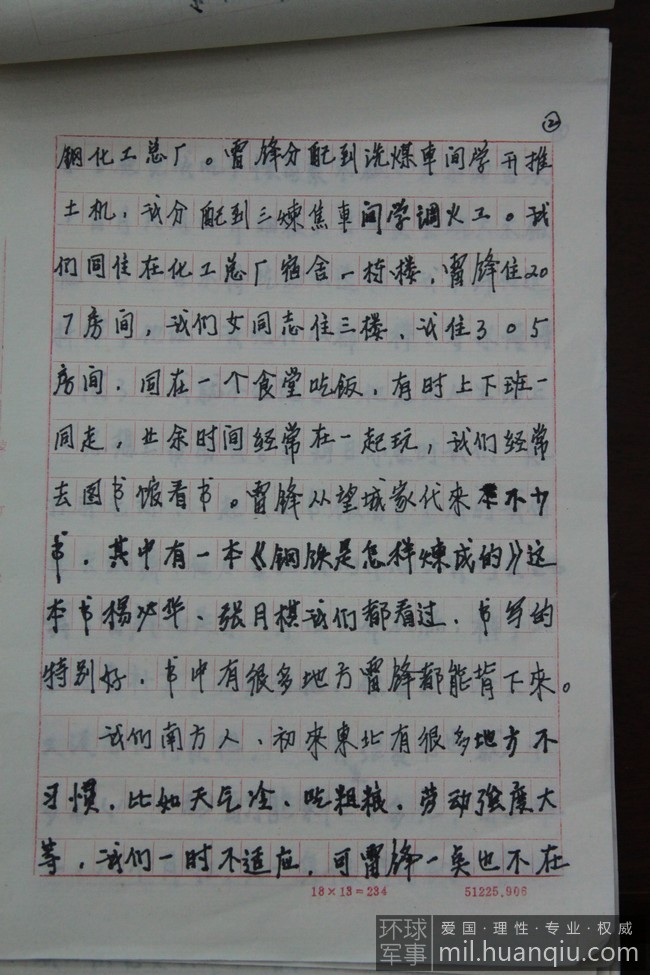 ②
钢化工总厂。雷锋分配到洗煤車间学开推
土机，我分配到三煉焦車间学调火工。我
们同住在化工总厂宿舍一栋楼，雷锋住20
7房间，我们女同志住三楼，我住305
房间，同在一个食堂吃饭，有时上下班一
同走，业余时间经常在一起玩，我们经常
去图书馆看书。雷锋从望城家代来不少
书，其中有一本《钢铁是怎样煉成的》这
本书楊 华、张月棋我们都看过，书写的
特别好，书中有很多地方雷锋都能背下來。
我们南方人、初來東北有很多地方不
习惯，比如天气冷、吃粗粮，劳动強度大
等，我们一时不适应，可雷锋一奌也不在
18×13=234 51225.906
环球军事
爱国·理性·专业·权威
mil.huanqiu.com